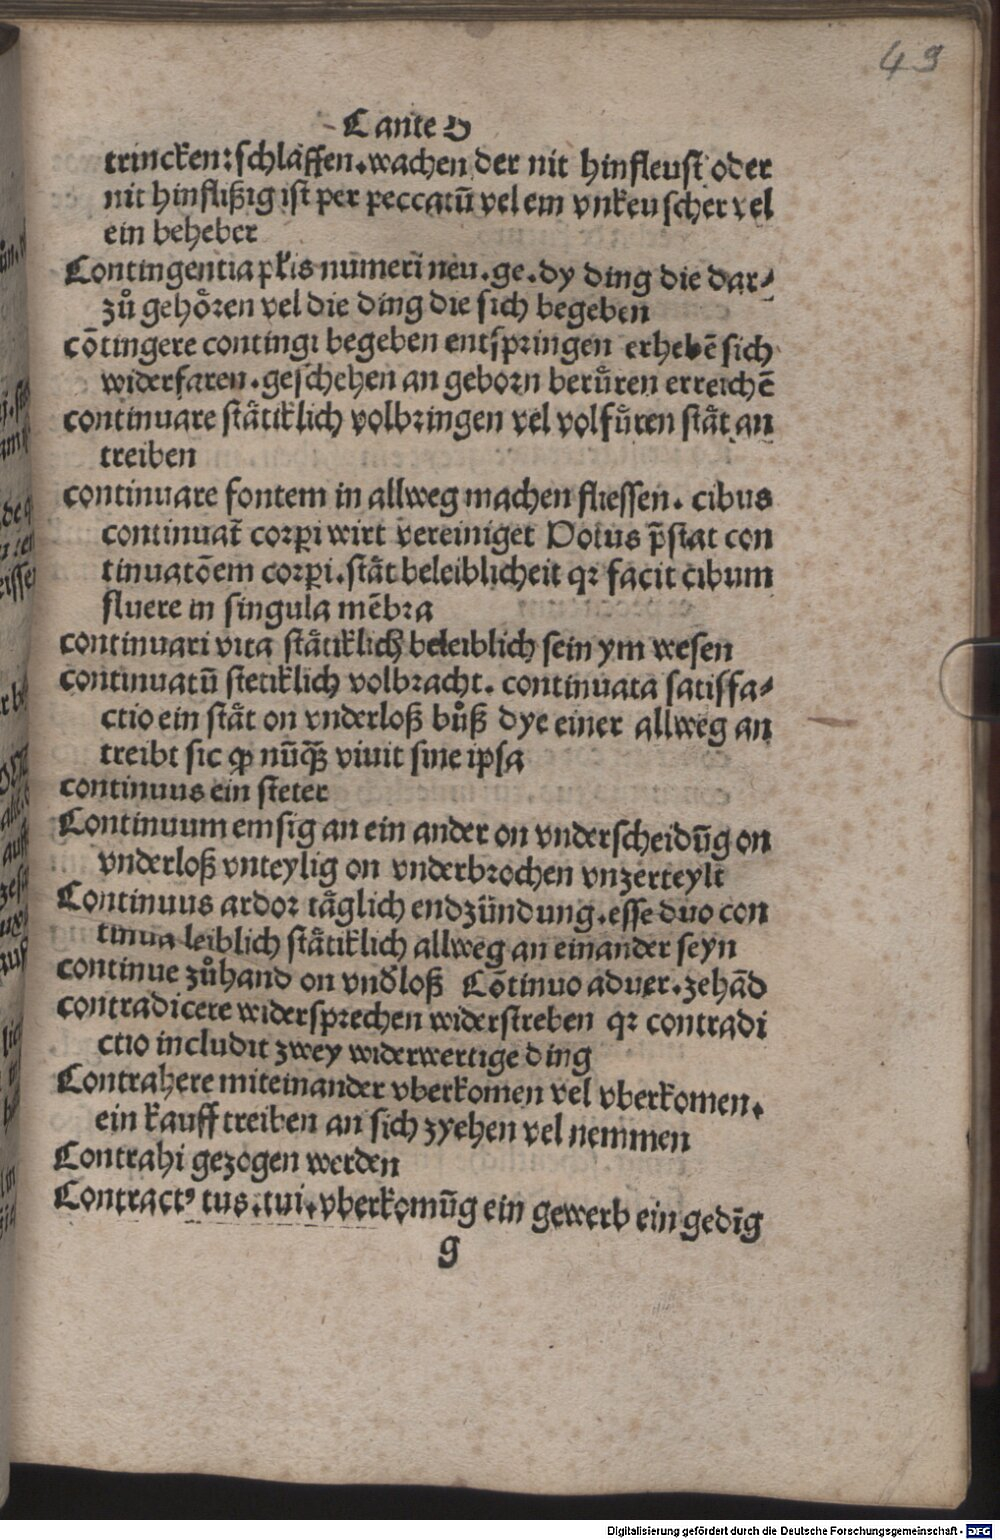 49
C ante O
trincken: schlaffen. wachen der nit hinfleust oder
nit hinflißig ist per peccatū vel ein vnkeuscher vel
ein beheber
Contingentia pl̄is numeri neu. ge. dy ding die dar⸗
zů gehoͤren vel die ding die sich begeben
cōtingere contingi begeben entspringen erhebē sich
widerfaren. geschehen an geborn beruͤren erreichē
continuare staͤtiklich volbringen vel volfuͤren staͤt an
treiben
continuare fontem in allweg machen fliessen. cibus
continuat̄ corꝑi wirt vereiniget Potus p̄stat con
tinuatōem corꝑi. staͤt beleiblicheit qꝛ facit cibum
fluere in singula mēbra
continuari vita staͤtiklich beleiblich sein ym wesen
continuatū stetiklich volbracht. continuata satisfa⸗
ctio ein staͤt on vnderloß bůß dye einer allweg an
treibt sic ꝙ nūqꝫ viuit sine ipsa
continuus ein steter
Continuum emsig an ein ander on vnderscheidūg on
vnderloß vnteylig on vnderbrochen vnzerteylt
Continuus ardor taͤglich endzündung. esse duo con
tinua leiblich staͤtiklich allweg an einander seyn
continue zůhand on vnd̄loß Cōtinuo aduer. zehād
contradicere widersprechen widerstreben qꝛ contradi
ctio includit zwey widerwertige ding
Contrahere miteinander vberkomen vel vberkomen.
ein kauff treiben an sich zyehen vel nemmen
Contrahi gezogen werden
Contractꝰ tus. tui. vberkomūg ein gewerb ein gedīg
g
Digitalisierung gefördert durch die Deutsche Forschungsgemeinschaft - DFG